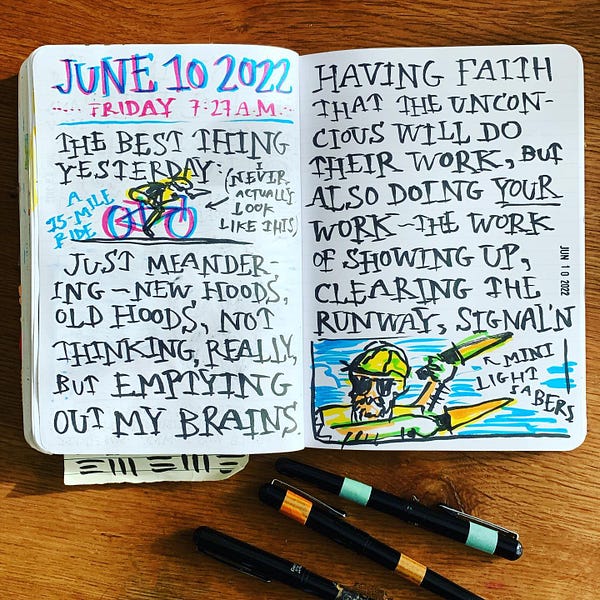 JUNE 10 2022
FRIDAY 7:27 A.M.
THE BEST THING
YESTERDAY:
A
15-MILE
RIDE
(I NEVER
ACTUALLY
LOOK
LIKE THIS)
JUST MEANDER-
ING—NEW HOODS,
OLD HOODS, NOT
THINKING, REALLY,
BUT EMPTYING
OUT MY BRAINS
HAVING FAITH
THAT THE UNCON-
CIOUS WILL DO
THEIR WORK, BUT
ALSO DOING YOUR
WORK—THE WORK
OF SHOWING UP,
CLEARING THE
RUNWAY, SIGNAL'N
JUN 10 2022
MINI
LIGHT
SABERS